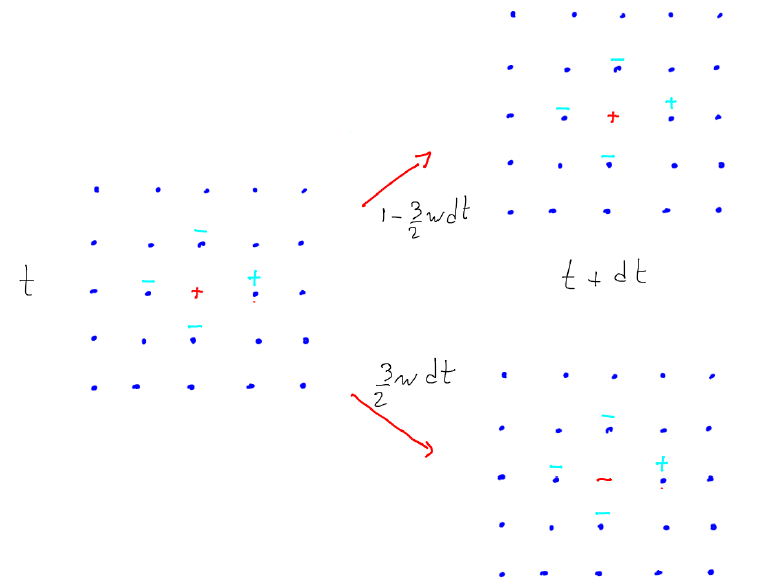 −
− + +
−
1 - 3/2 w dt
−
− + +
−
t
t + dt
3/2 w dt
−
− ~ +
−